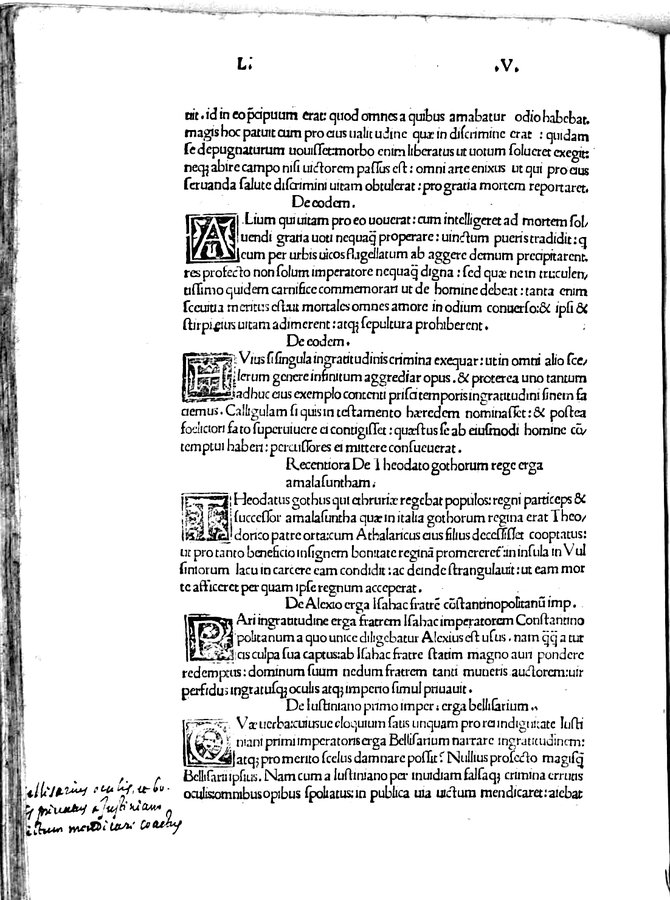 L: .V.
uit. id in eo p̄cipuum erat: quod omnes a quibus amabatur odio habebat.
magis hoc patuit cum pro eius ualitudine quæ in discrimine erat : quidam
se depugnaturum uouisset: morbo enim liberatus ut uotum solueret exegit:
neq; abire campo nisi uictorem passus est: omni arte enixus ut qui pro eius
seruanda salute discrimini uitam obtulerat: pro gratia mortem reportaret.
De eodem.
ALium qui uitam pro eo uouerat: cum intelligeret ad mortem sol/
uendi gratia uoti nequaq̄ properare: uinctum pueris tradidit: q
eum per urbis uicos flagellatum ab aggere demum precipitarent.
res profecto non solum imperatore nequaq̄ digna: sed quæ ne in truculen/
tissimo quidem carnifice commemorari ut de homine debeat: tanta enim
sceuitia meritus est: aut mortales omnes amore in odium conuerso: & ipsi &
stirpi eius uitam adimerent: atq; sepultura prohiberent.
De eodem.
HVius si singula ingratitudinis crimina exequar: ut in omni alio sce/
lerum genere infinitum aggrediar opus. & proterea uno tantum
adhuc eius exemplo contenti prisci temporis ingratitudini finem fa
ciemus. Calligulam si quis in testamento hæredem nominasset: & postea
fo
to superuiuere ei contigisset: quæstus se ab eiusmodi homine cō/
temptui haberi: percussores ei mittere consueuerat.
Recentiora De Theodato gothorum rege erga
amalasuntham.
THeodatus gothus qui ethruriæ regebat populos: regni particeps &
successor amalasuntha quæ in italia gothorum regina erat Theo/
dorico patre orta: cum Athalaricus eius filius decessisset cooptatus:
ut pro tanto beneficio insignem bonitate reginā promereret̄: in insula in Vul
siniorum lacu in carcere eam condidit: ac deinde strangulauit: ut eam mor
te afficeret per quam ipse regnum acceperat.
De Alexio erga Isahac fratrē cōstantinopolitanū imp.
PAri ingratitudine erga fratrem Isahac imperatorem Constantino
politanum a quo unice diligebatur Alexius est usus. nam q̄q̄ a tur
cis culpa sua captus: ab Isahac fratre statim magno auri pondere
redemptus: dominum suum nedum fratrem tanti muneris auctorem: uir
perfidus ingratusq; oculis atq; imperio simul priuauit.
De Iustiniano primo imper: erga bellisarium.
QVæ uerba: cuiusue eloquium satis unquam pro rei indignitate Iusti
niani primi imperatoris erga Bellisarium narrare ingratitudinem:
atq; pro merito scelus damnare possit? Nullius profecto magisq̄
Bellisarii ipsius. Nam cum a Iustiniano per inuidiam falsaq; crimina erutis
oculis: omnibus opibus spoliatus: in publica uia uictum mendicaret: aiebat
ellisarius oculis, et bo-
priuatus a Justiniano
ictum mendicari coactus